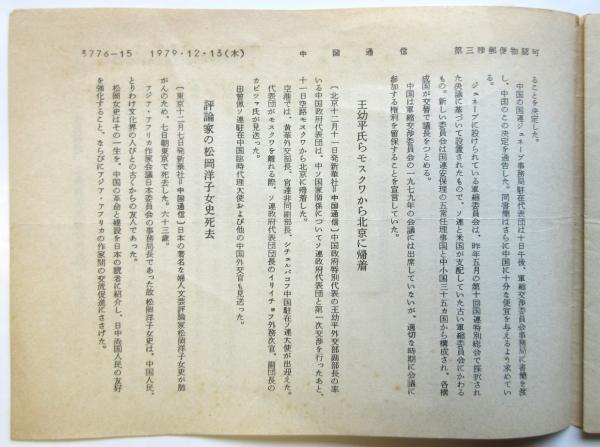 3776-15 1979・12・13(木)
中国通信
第三種郵便物認可
ることを決定した。
中国の国連ジュネーブ事務局駐在代表団は十日午後、軍縮交渉委員会事務局に書簡を渡
し、中国のこの決定を通告した。同書簡はさらに中国に十分な便宜を与えるよう求めてい
る。
ジュネーブに設けられている軍縮委員会は、昨年五月の第十回国連特別総会で採択され
た決議に基づいて設置されたもので、ソ連と米国が支配していた古い軍縮委員会にかわる
もの。新しい委員会は国連安保理の五常任理事国と中小国三十五ヵ国から構成され、各構
成国が交替で議長をつとめる。
中国は軍縮交渉委員会の一九七九年の会議には出席していないが、適切な時期に会議に
参加する権利を留保することを宣言していた。
王幼平氏らモスクワから北京に帰着
〔北京十二月十一日発新華社＝中国通信〕中国政府特別代表の王幼平外交部副部長の率
いる中国政府代表団は、中ソ国家関係についてソ連政府代表団と第一次交渉を行ったあと、
十一日空路モスクワから北京に帰着した。
空港では、黄華外交部長、宮達非同副部長、シチェルバコフ中国駐在ソ連大使が出迎えた。
代表団がモスクワを離れる際、ソ連政府代表団団長のイリイチョフ外務次官、副団長の
カピッツァ氏が見送った。
田曽佩ソ連駐在中国臨時代理大使および他の中国外交官も見送った。
評論家の松岡洋子女史死去
〔東京十二月七日発新華社＝中国通信〕日本の著名な婦人文芸評論家松岡洋子女史が肺
がんのため、七日朝東京で死去した。六十三歳。
アジア・アフリカ作家会議日本委員会の事務局長であった故松岡洋子女史は、中国人民、
とりわけ文化界の人びとの古くからの友人であった。
松岡女史はその一生を、中国の革命と建設を日本の読者に紹介し、日中両国人民の友好
を強化すること、ならびにアジア・アフリカの作家間の交流促進にささげた。